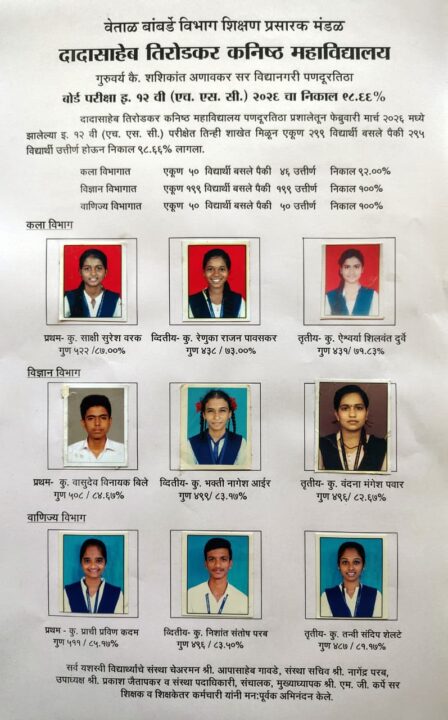 वेताळ बांबर्डे विभाग शिक्षण प्रसारक मंडळ
दादासाहेब तिरोडकर कनिष्ठ महाविद्यालय
गुरुवर्य कै. शशिकांत अणावकर सर विद्यानगरी पणदूरतिठा
बोर्ड परीक्षा इ. १२ वी (एच. एस. सी.) २०२६ चा निकाल ९८.६६%
दादासाहेब तिरोडकर कनिष्ठ महाविद्यालय पणदूरतिठा प्रशालेतून फेब्रुवारी मार्च २०२६ मध्ये
झालेल्या इ. १२ वी (एच. एस. सी.) परीक्षेत तिन्ही शाखेत मिळून एकूण २९९ विद्यार्थी बसले पैकी २९५
विद्यार्थी उत्तीर्ण होऊन निकाल ९८.६६% लागला.
कला विभागात एकूण ५० विद्यार्थी बसले पैकी ४६ उत्तीर्ण निकाल ९२.००%
विज्ञान विभागात एकूण १९९ विद्यार्थी बसले पैकी १९९ उत्तीर्ण निकाल १००%
वाणिज्य विभागात एकूण ५० विद्यार्थी बसले पैकी ५० उत्तीर्ण निकाल १००%
कला विभाग
प्रथम- कु. साक्षी सुरेश वरक व्दितीय- कु. रेणुका राजन पावसकर तृतीय- कु. ऐश्वर्या शिलवंत दुर्वे
गुण ५२२ /८७.००% गुण ४३८ / ७३.००% गुण ४३१/ ७१.८३%
विज्ञान विभाग
प्रथम- कु. वासुदेव विनायक बिले व्दितीय- कु. भक्ती नागेश आईर तृतीय- कु. वंदना मंगेश पवार
गुण ५०८ / ८४.६७% गुण ४९९/ ८३.१७% गुण ४९६/ ८२.६७%
वाणिज्य विभाग
प्रथम - कु. प्राची प्रविण कदम व्दितीय- कु. निशांत संतोष परब तृतीय- कु. तन्वी संदिप शेलटे
गुण ५११ / ८५.१७% गुण ४९६ / ८३.५०% गुण ४८७ / ८१.१७%
सर्व यशस्वी विद्यार्थ्यांचे संस्था चेअरमन श्री. आपासाहेब गावडे, संस्था सचिव श्री. नागेंद्र परब,
उपाध्यक्ष श्री. प्रकाश जैतापकर व संस्था पदाधिकारी, संचालक, मुख्याध्यापक श्री. एम. जी. कर्पे सर
शिक्षक व शिक्षकेतर कर्मचारी यांनी मनःपूर्वक अभिनंदन केले.